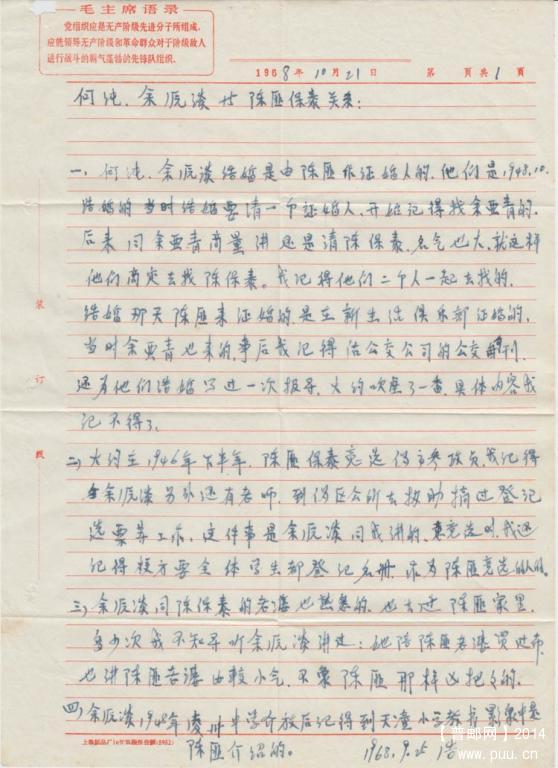 毛主席语录
党组织应是无产阶级先进分子所组成,
应能领导无产阶级和革命群众对于阶级敌人
进行战斗的朝气蓬勃的先锋队组织。
1968年10月21日 第 页共1页
何纯、余 淡与陈匪保泰关系:
一、何纯、余 淡结婚是由陈匪作证婚人的,他们是1948.10.
结婚的当时结婚要请一个证婚人,开始记得找余亚青的,
后来同余亚青商量讲还是请陈保泰,名气也大,就这样
他们商定去找陈保泰。我记得他们二个人一起去找的,
结婚那天陈匪来证婚的是在新生活俱乐部证婚的,
当时余亚青也来的,事后我记得 公交公司的公交 刊,
还为他们结婚写过一次报导,大约吹嘘了一番,具体内容我
记不得了。
二、大约在1946年下半年,陈匪保泰竞选伪市参政员,我记得
余 淡另外还有老师,到伪区公所去 助搞过登记
选票等工作,这件事是余 淡同我讲的,竞选时,我还
记得校方要全体学生都登记名册,作为陈匪竞选的人的。
三、余 淡同陈保泰的老婆也熟悉的,也去过陈匪家里,
多少次我不知寻听余 淡讲过:她陪陈匪老婆买过布,
也讲陈匪老婆 较小气,不象陈匪那样 把 的。
四、余 淡1948年 中学介放后记得到天潼小学教书影象中是
陈匪介绍的。 1968.9.25
装
订
线
上海纸品厂
(1962)
[普邮网] 2014
www.puu.cn